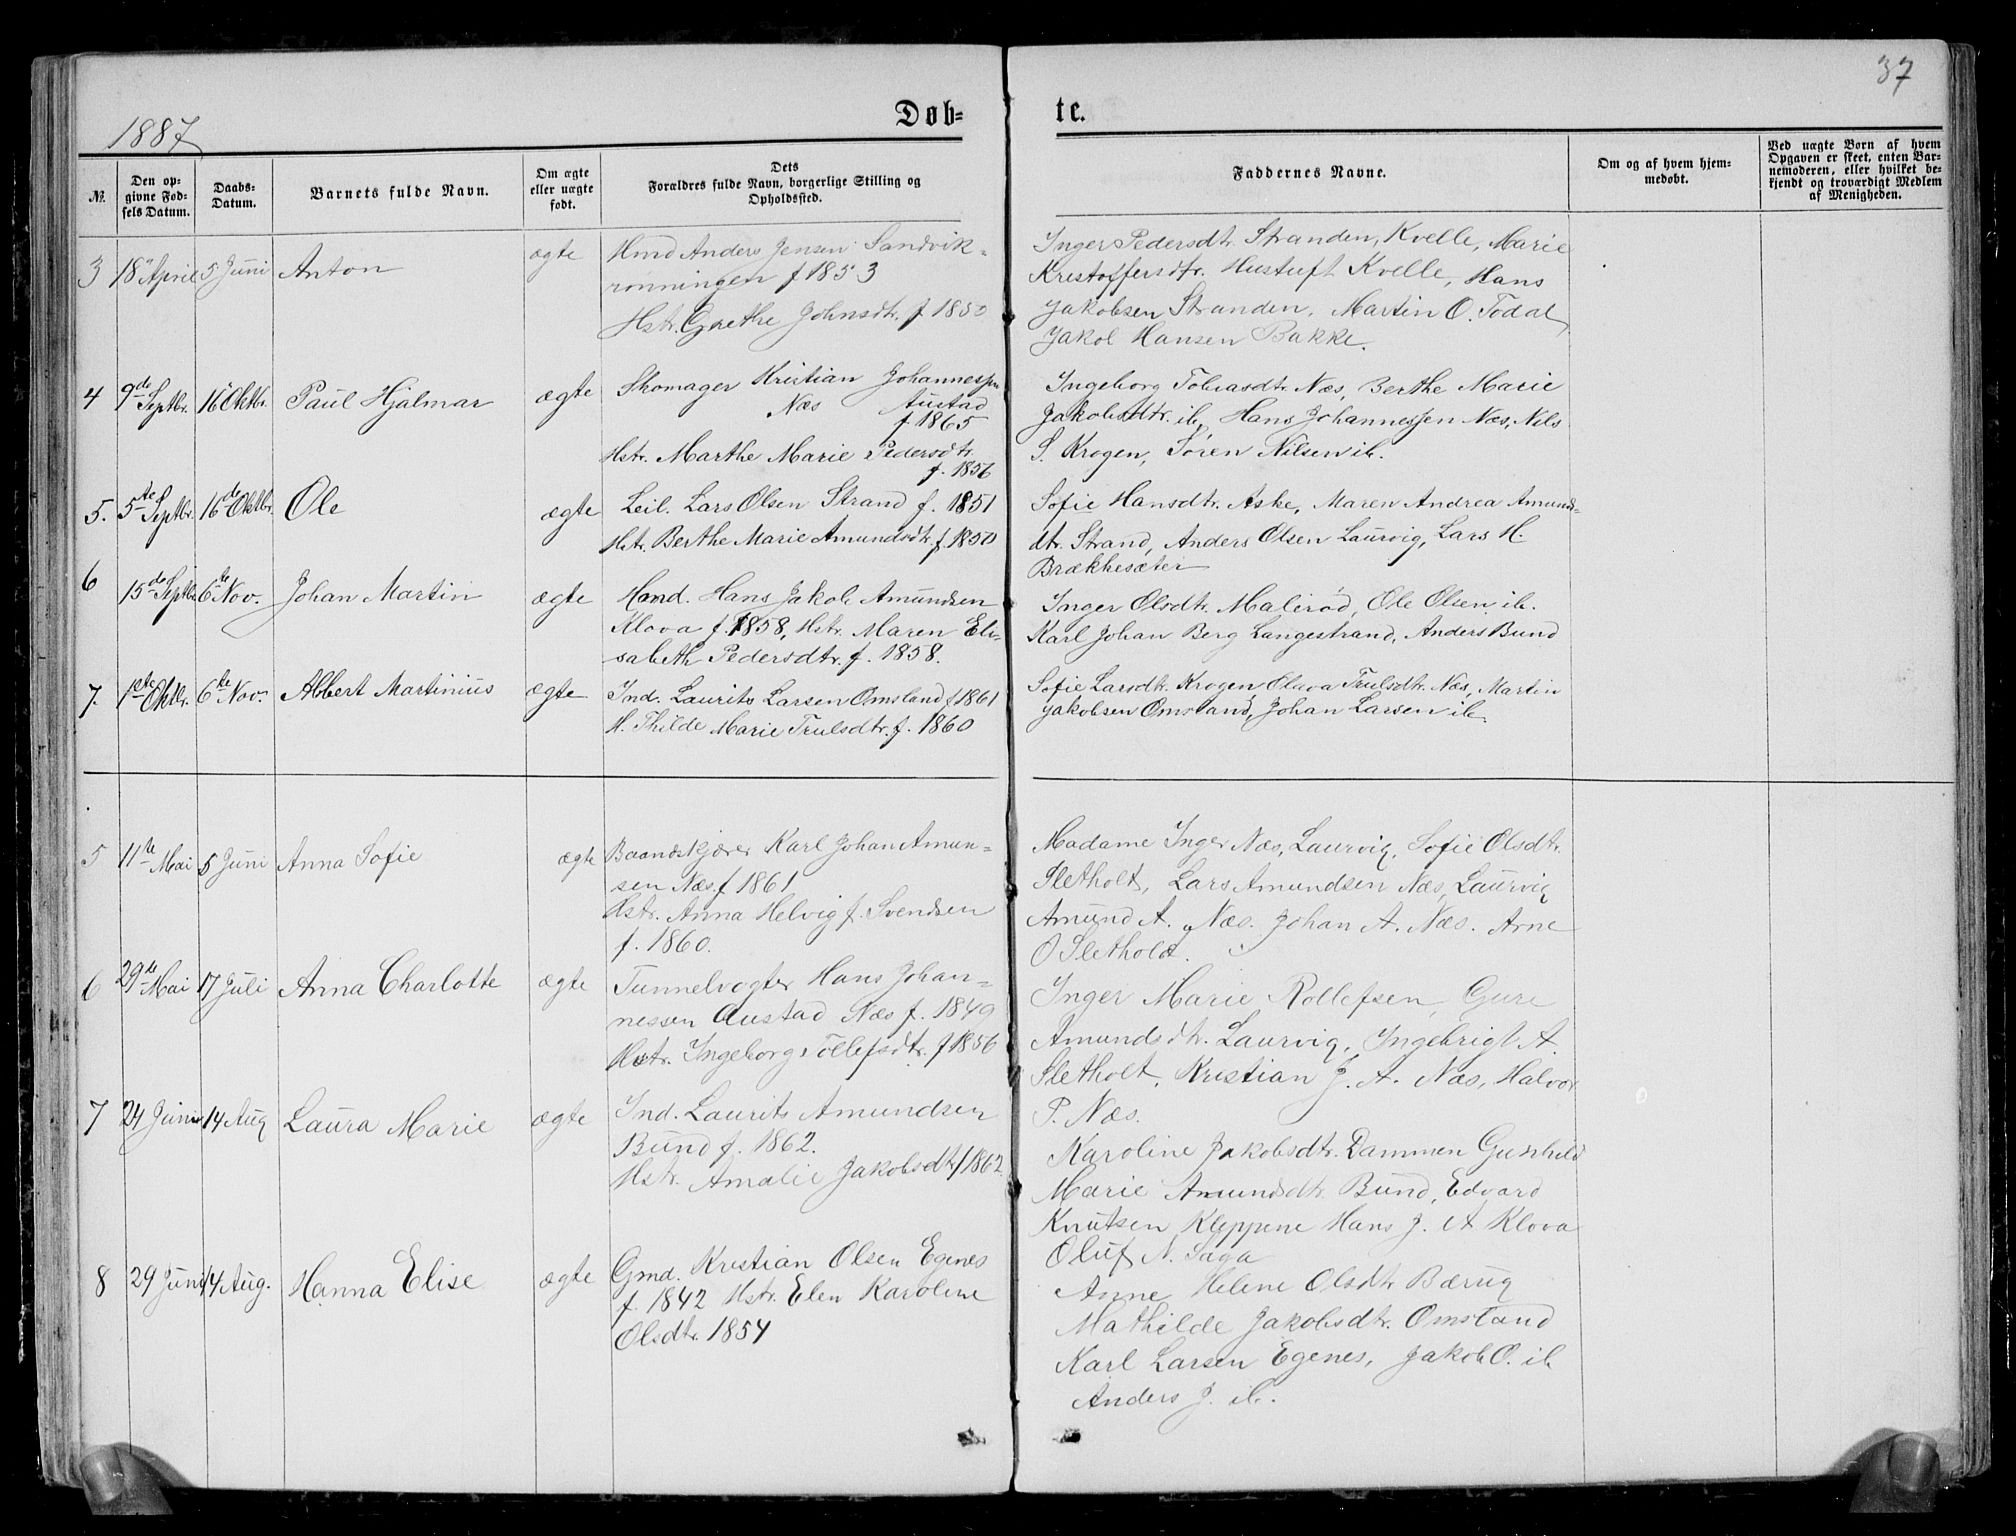 37
1887
Døb=
te.
№.
Den op-
givne Fød-
sels Datum.
Daabs-
Datum.
Barnets fulde Navn.
Om ægte
eller uægte
født.
Dets
Forældres fulde Navn, borgerlige Stilling og
Opholdssted.
Faddernes Navne.
Om og af hvem hjem-
medøbt.
Ved uægte Børn af hvem
Opgaven er skeet, enten Bar-
nemoderen, eller hvilket be-
kjendt og troværdigt Medlem
af Menigheden.
3 18 April 5 Juni Anton ægte Hmd Anders Jensen Sandvik=
rønningen f 1853
Hstr. Grethe Johnsdtr. f 1850
Inger Pedersdtr. Stranden, Kvelle, Marie
Kristoffersdtr. Hustuft Kvelle, Hans
Jakobsen Stranden, Martin O. Todal,
Jakob Hansen Bakke.
4 9de Septbr. 16 Oktbr. Paul Hjalmar ægte Skomager Kristian Johannessen
Næs Austad
f. 1865
Hstr. Marthe Marie Pedersdtr.
f. 1856
Ingeborg Tobiasdtr. Næs, Berthe Marie
Jakobsdtr. ib, Hans Johannessen Næs, Nils
S. Krogen, Søren Nilsen ib.
5. 5te Septbr. 16de Oktbr. Ole ægte Leil. Lars Olsen Strand f. 1851
Hstr. Berthe Marie Amundsdtr. f. 1850
Sofie Hansdtr. Aske, Maren Andrea Amunds=
dtr. Strand, Anders Olsen Laurvig, Lars H.
Brækkesæter
6 15de Septbr. 6te Nov. Johan Martin ægte Hand. Hans Jakob Amundsen
Klova f. 1858, Hstr. Maren Eli=
sabeth Pedersdtr. f. 1858.
Inger Olsdtr. Malerød, Ole Olsen ib.
Karl Johan Berg Langestrand, Anders Bund
7. 1ste Oktbr. 6te Nov. Abbert Martinius ægte Ind. Laurits Larsen Omsland f 1861
H. Thilde Marie Trulsdtr. f. 1860
Sofie Larsdtr. Krogen Olava Trulsdtr. Næs, Martin
Jakobsen Omsland, Johan Larsen ib.
5 11te Mai 5 Juni Anna Sofie ægte Baandskjærer Karl Johan Amun=
sen Næs f 1861
Hstr. Anna Helvig f. Svendsen
f. 1860.
Madame Inger Næs, Laurvig, Sofie Olsdtr.
Sletholt, Lars Amundsen Næs, Laurvig
Amund A. Næs. Johan A. Næs. Arne
O Sletholt.
6 29de Mai 17 Juli Anna Charlotte ægte Tunnelvogter Hans Johan=
nessen Austad Næs f. 1849
Hstr. Ingeborg Tollefsdtr. f 1856
Inger Marie Rollefsen, Gure
Amundsdtr. Laurvig, Ingebrigt A.
Sletholt, Kristian J. A. Næs, Halvor
P. Næs.
7 24 Juni 14 Aug Laura Marie ægte Ind. Laurits Amundsen
Bund f. 1862.
Hstr. Amalie Jakobsdtr f 1862
Karoline Jakobsdtr. Dammen Gunhild
Marie Amundsdtr. Bund, Edvard
Knutsen Kleppene Hans J. A Klova
Oluf N. Saga
8 29 Juni 14 Aug. Hanna Elise ægte Gmd. Kristian Olsen Egenes
f. 1842 Hstr. Elen Karoline
Olsdtr. 1854
Anne Helene Olsdtr Bærug
Mathilde Jakobsdtr. Omsland
Karl Larsen Egenes, Jakob O. ib
Anders J. ib.